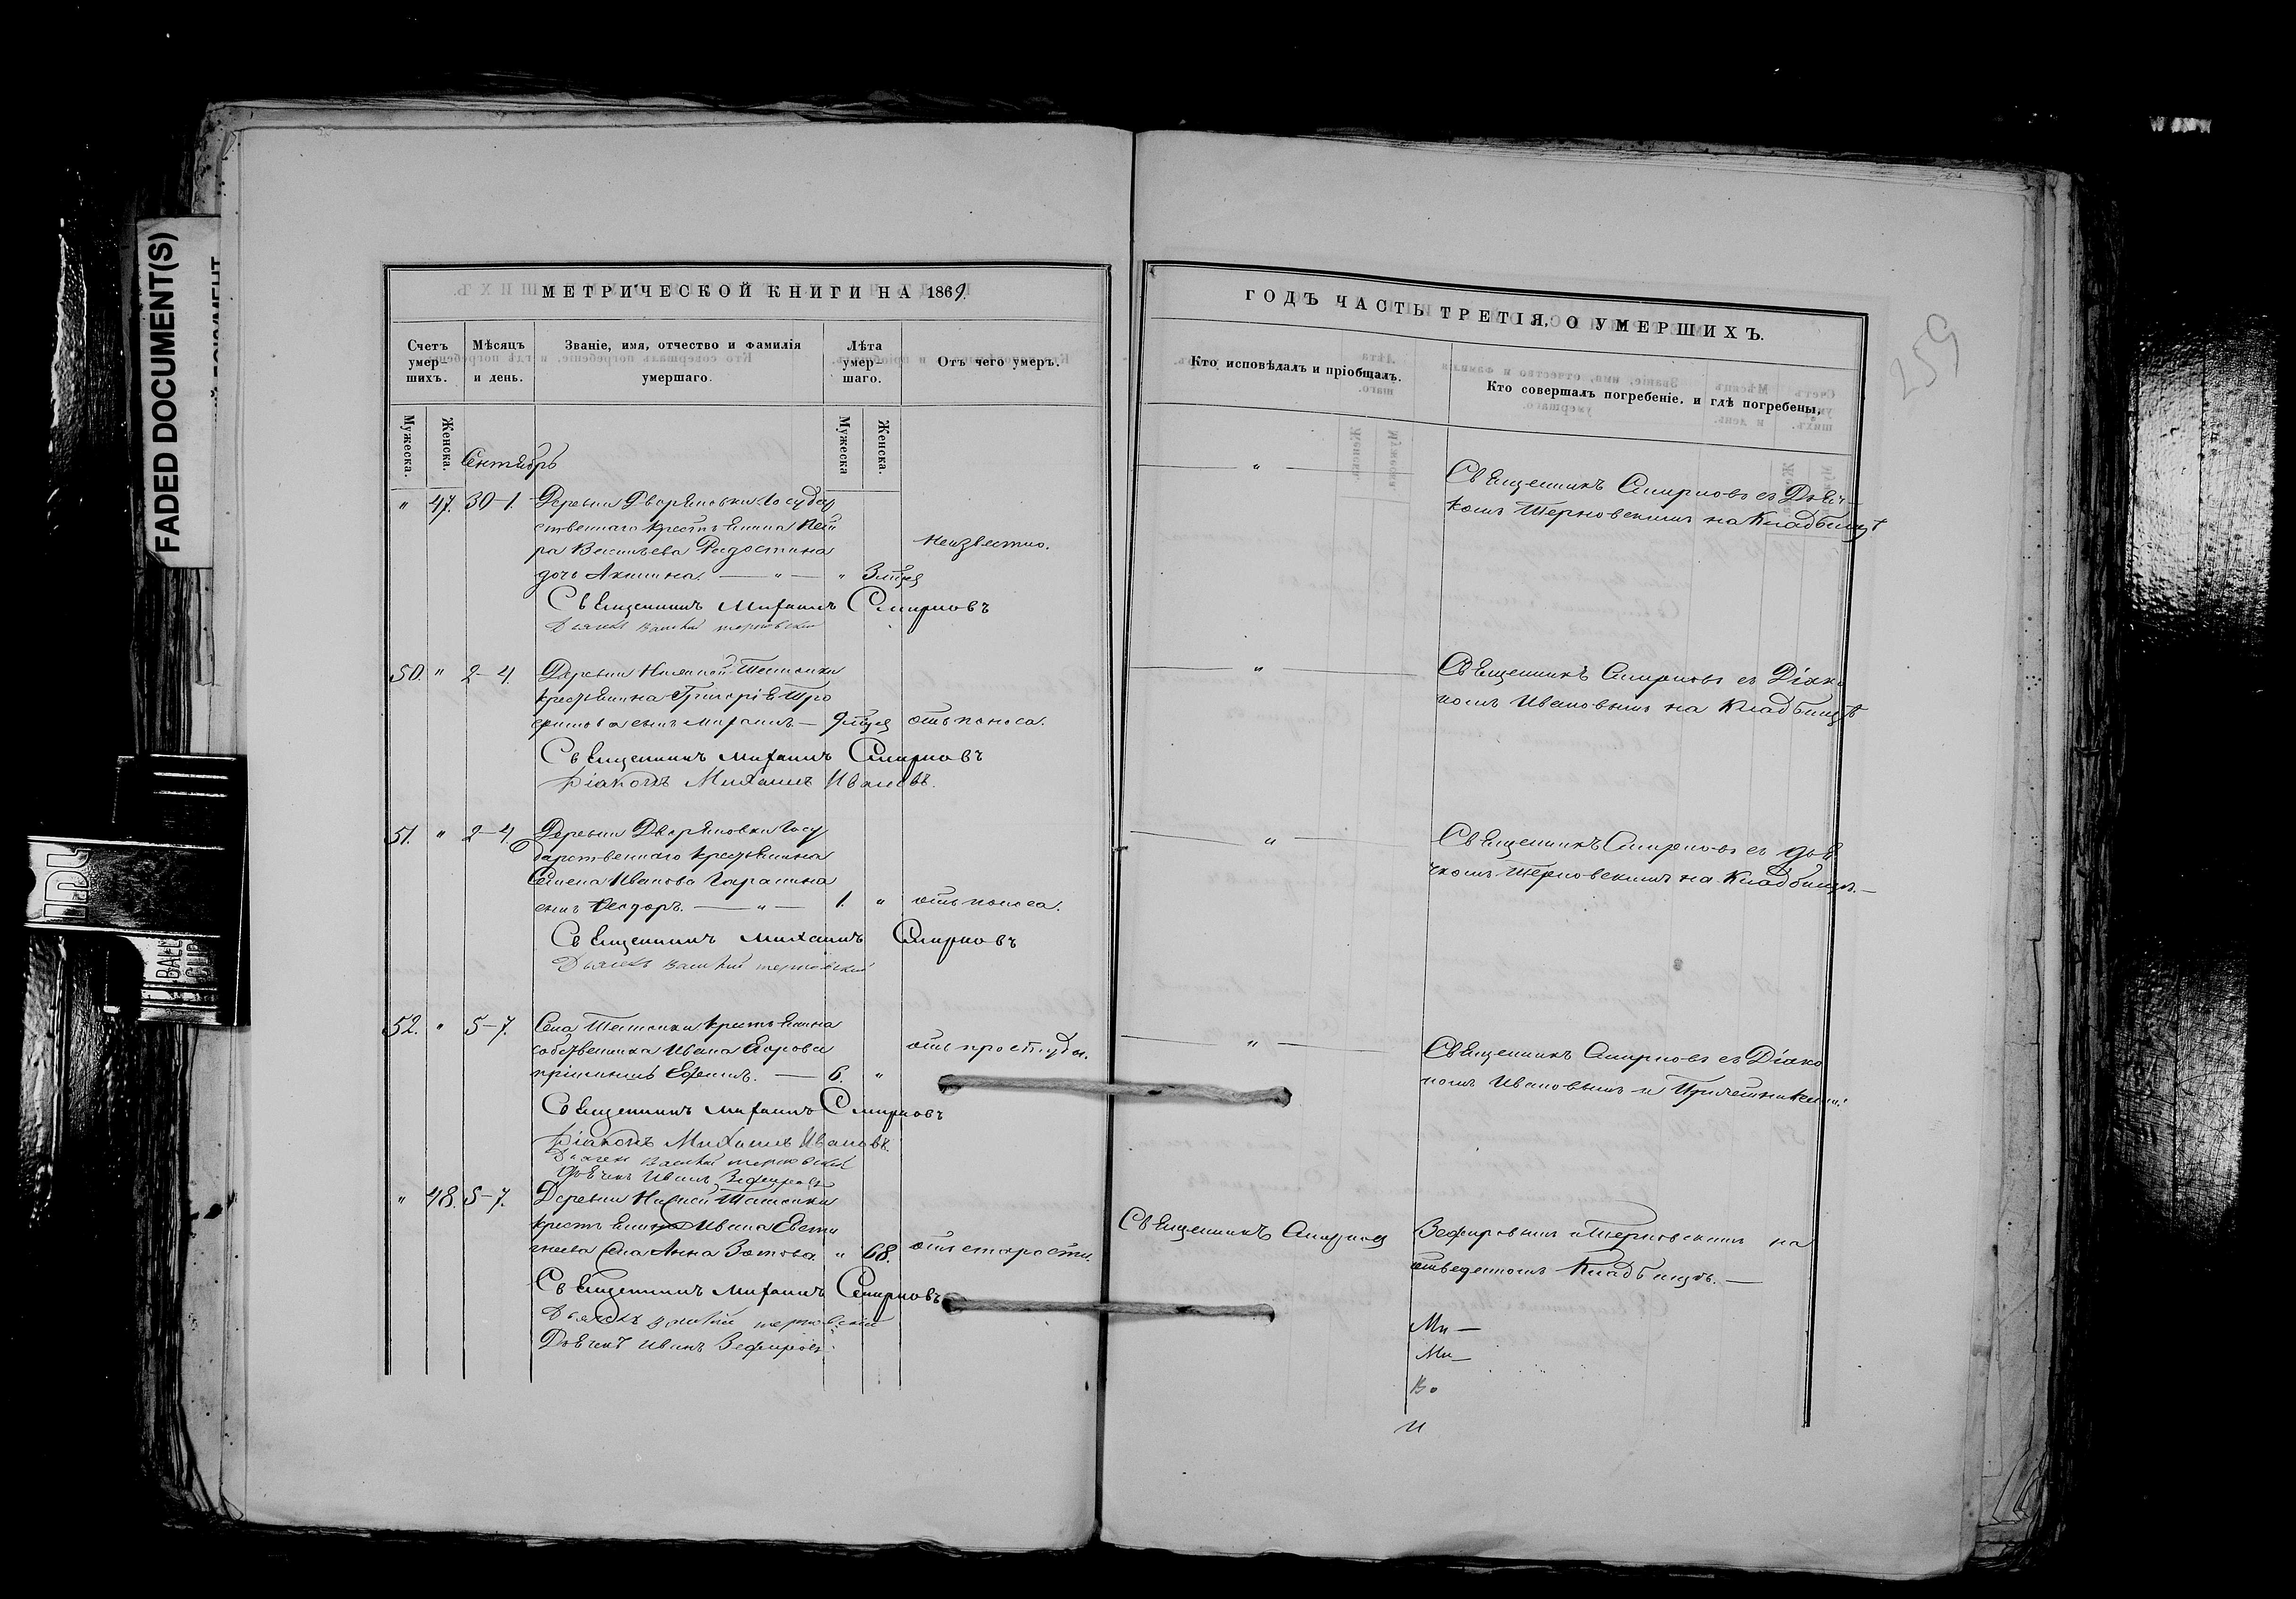 FADED DOCUMENT(S)
МЕТРИЧЕСКОЙ КНИГИ НА 1869.
Счетъ умер шихъ.
Мѣсяцъ и день.
Званіе, имя, отчество и фамилія умершаго.
Лѣта умер- шаго.
Отъ чего умеръ.
Мужеска.
Женска.
Мужеска
Женска.
Сентябрь
" 47. 30-1. Деревни Дворяновки Государ
ственнаго крестьянина Пет
ра Васильева
неизвестно.
дочь Акилина. — " — " 3 мѣся
Священникъ Михаилъ Смирновъ
Дьячекъ Василій терновскій
50. " 2-4. Деревни
крестьянина Григорія Тро
фимова сынъ Михаилъ — 9 мѣся отъ поноса.
Священникъ Михаилъ Смирновъ
Діаконъ Михаилъ Ивановъ.
51. " 2-4. Деревни Дворяновки Госу
дарственнаго крестьянина
Семена Иванова Гаранина
сынъ Феодоръ. — " — 1. " отъ поноса.
Священникъ Михаилъ Смирновъ
Дьячекъ Василій терновскій
52. " 5-7. Села крестьянина
собственника Ивана Егорова
отъ простуды.
Ефимъ. — 6. "
Священникъ Михаилъ Смирновъ
Діаконъ Михаилъ Ивановъ.
Дьячекъ Василій терновскій
Дьячекъ Иванъ Зефировъ
" 48. 5-7. Деревни
крестьянина Ивана Евсти
гнеева Анна Зотова. " 68. отъ старости.
Священникъ Михаилъ Смирновъ
Дьячекъ Василій терновскій
Дьячекъ Иванъ Зефировъ
ГОДЪ ЧАСТЬ ТРЕТІЯ, О УМЕРШИХЪ.
259
Кто исповѣдалъ и пріобщалъ.
Кто совершалъ погребеніе. и гдѣ погребены.
— " — Священникъ Смирновъ съ Дьяч-
комъ Терновскимъ на Кладбищѣ
— " — Священникъ Смирновъ съ Діако
номъ Ивановымъ на Кладбищѣ
— " — Священникъ Смирновъ съ дья
чкомъ Терновскимъ на Кладбищѣ. —
— " — Священникъ Смирновъ съ Діако
номъ Ивановымъ и Причетниками:
Священникъ Смирновъ
Зефировымъ и Терновскимъ на
отведенномъ Кладбищѣ. —
Ми —
Ми —
Ва
И